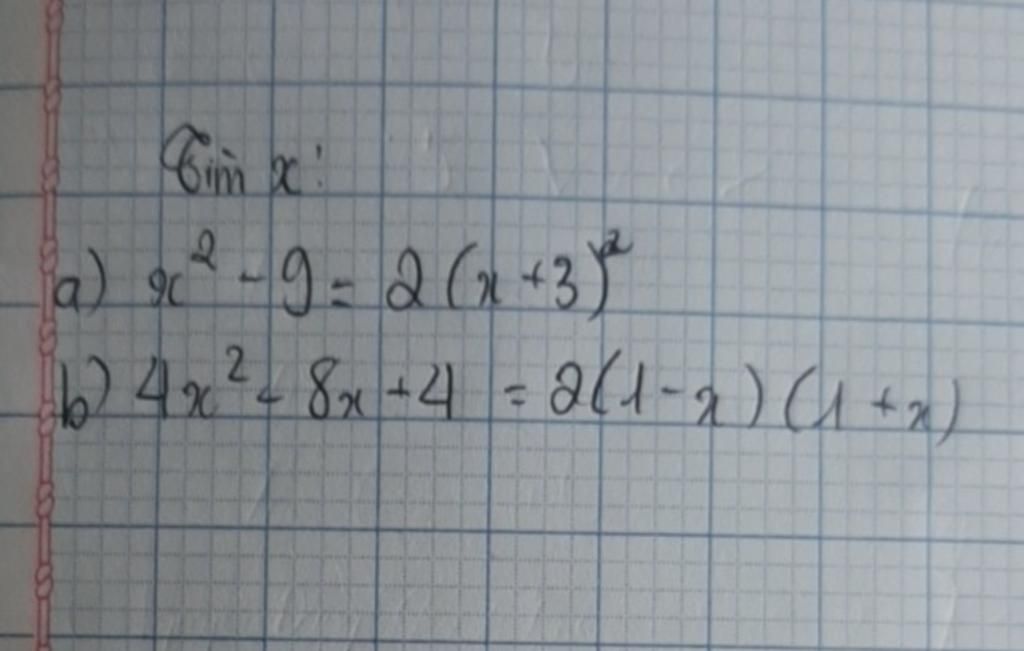 Tìm x:
a) x² - 9 = 2(x+3)²
b) 4x² - 8x + 4 = 2(1-x)(1+x)